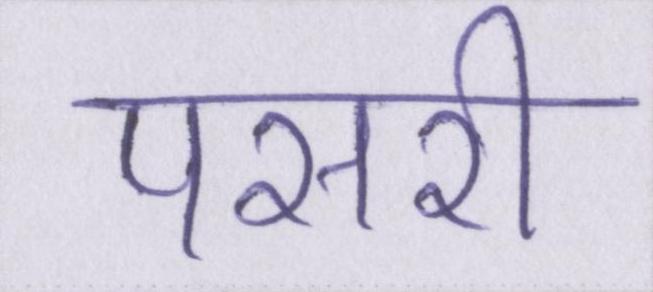 पसरी